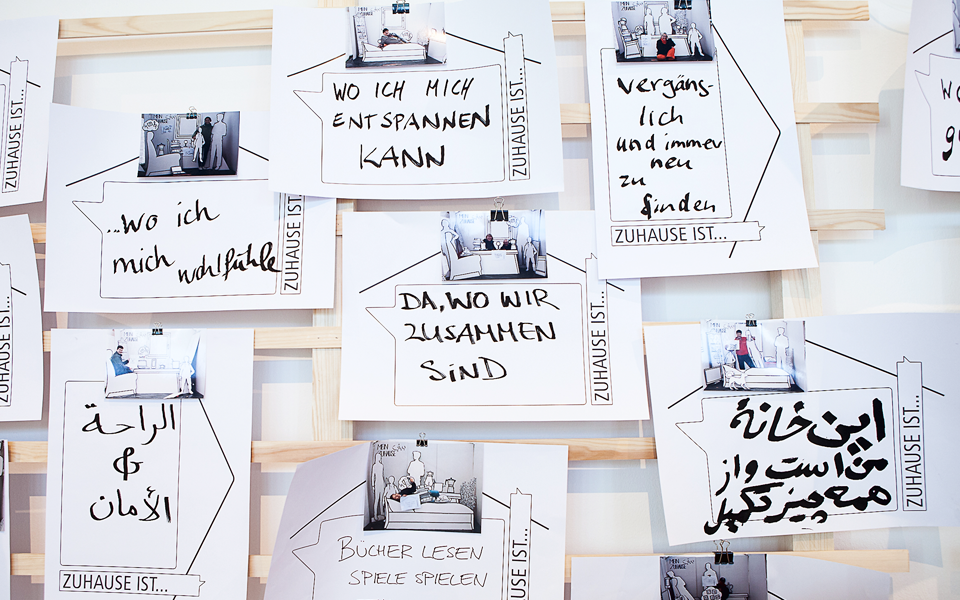 ZUHAUSE IST...
WO ICH MICH
ENTSPANNEN
KANN
ZUHAUSE IST...
vergäng-
lich
und immer
neu
zu
finden
ZUHAUSE IST...
...wo ich
mich wohlfühle
ZUHAUSE IST...
DA, WO WIR
ZUSAMMEN
SIND
ZUHAUSE IST...
ZUHAUSE IST...
الراحة
&
الأمان
ZUHAUSE IST...
این خانهٔ
من است و از
همه چیز تکمیل
ZUHAUSE IST...
MEIN
ZUHAUSE
BÜCHER LESEN
SPIELE SPIELEN